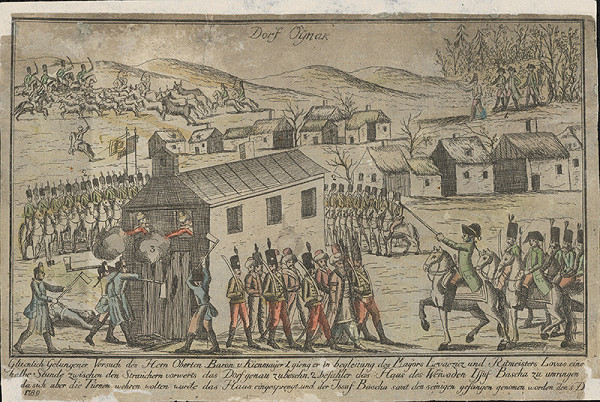 Dorf Ojnak
3
Glücklich Gelungener Versuch des Hern Obersten Baron v: Kienmayer Lgieng er in begleitung des Mayors Lovaczez und Ritmeisters Lovas eine
helbe Stunde zwischen den Sträuchern vorwerts das Dorf genau zubesehn. Befiehlet das Haus des Wewoden Ijuf Bascha zu umringen
da sich aber die Türnen wehren wolten wurde das Haus eingesprengt und der Jssuf Bascha samt den seinigen gefangen genomen worden den 5. D
1789